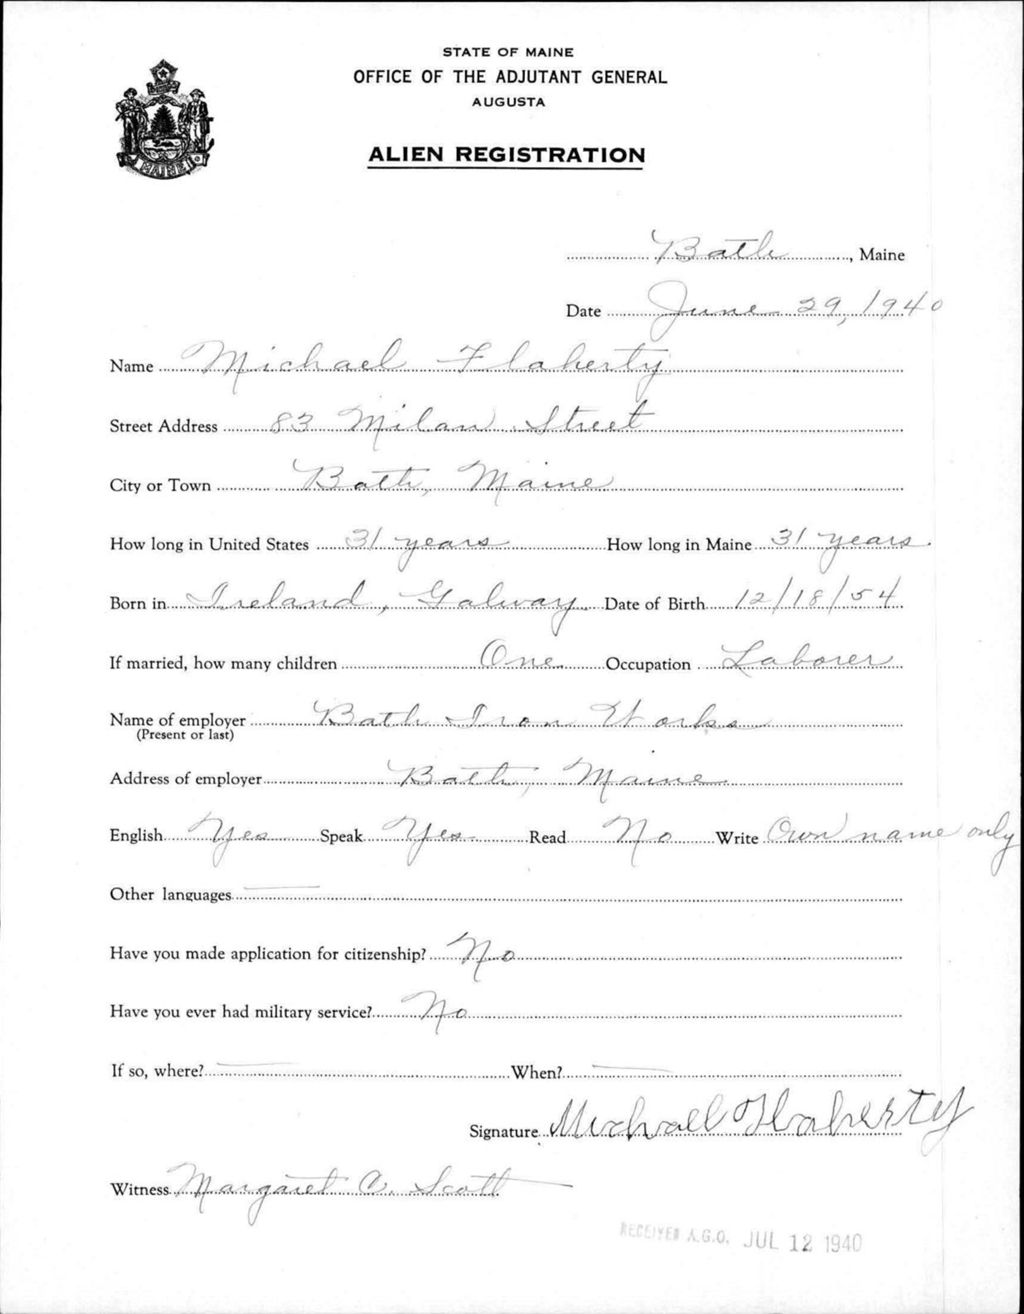 STATE OF MAINE
OFFICE OF THE ADJUTANT GENERAL
AUGUSTA
ALIEN REGISTRATION
MAINE
Bath, Maine
Date June 29, 1940
Name Michael Flaherty
Street Address 83 Milan Street
City or Town Bath, Maine
How long in United States 31 years How long in Maine 31 years.
Born in Ireland, Galway Date of Birth 12/18/54
If married, how many children One Occupation Laborer
Name of employer Bath Iron Works
(Present or last)
Address of employer Bath, Maine
English Yes Speak Yes Read No Write Own name only
Other languages —
Have you made application for citizenship? No
Have you ever had military service? No
If so, where? — When? —
Signature Michael Flaherty
Witness Margaret C. Scott
RECEIVED A.G.O. JUL 12 1940